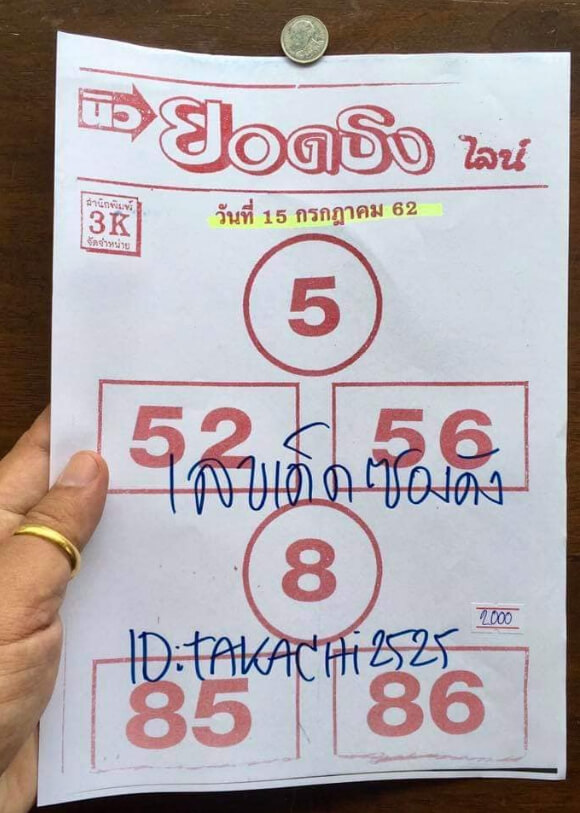 นิว ยอดธง ไลน์
สำนักพิมพ์
3K
จัดจำหน่าย
วันที่ 15 กรกฎาคม 62
5
52 56
เลขเด็ดซองดัง
8
2000
ID:TAKACHi2525
85 86